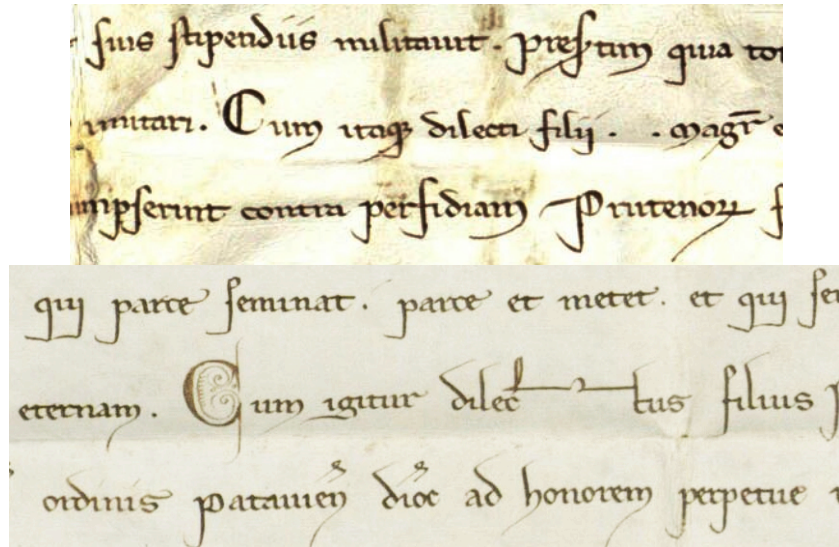 suis stipendiis militauit. Presertim quia
Cum itaq; dilecti filij . . magr̄
umpserint contra perfidiam Prutenoꝝ
qui parce seminat. parce et metet. et qui
eternam. Cum igitur dilectus filius
ordinis Patauien̄ dioc̄ ad honorem perpetue